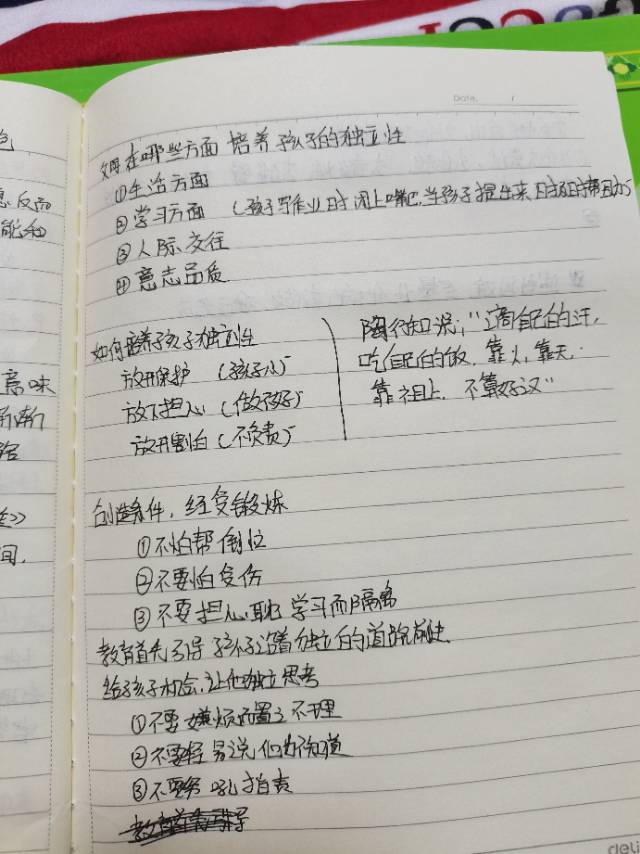 Date. /
父母在哪些方面 培养孩子的独立性
①生活方面
②学习方面 (孩子写作业时闭上嘴巴,当孩子提出来时及时帮助)
③人际交往
④意志品质
如何培养孩子独立性
放开保护 (孩子小)
放下担心 (做不好)
放开割白 (不负责)
陶行知说:"滴自己的汗,
吃自己的饭,靠人,靠天,
靠祖上,不算好汉"
创造条件,经受锻炼
①不怕帮倒忙
②不要怕受伤
③不要担心耽学习而隔离
教育首先引导孩子沿着独立的道路前进
给孩子机会,让他独立思考
①不要嫌烦而置之不理
②不要轻易说他们不知道
③不要吼指责
意味
能和
反而
间.
deli